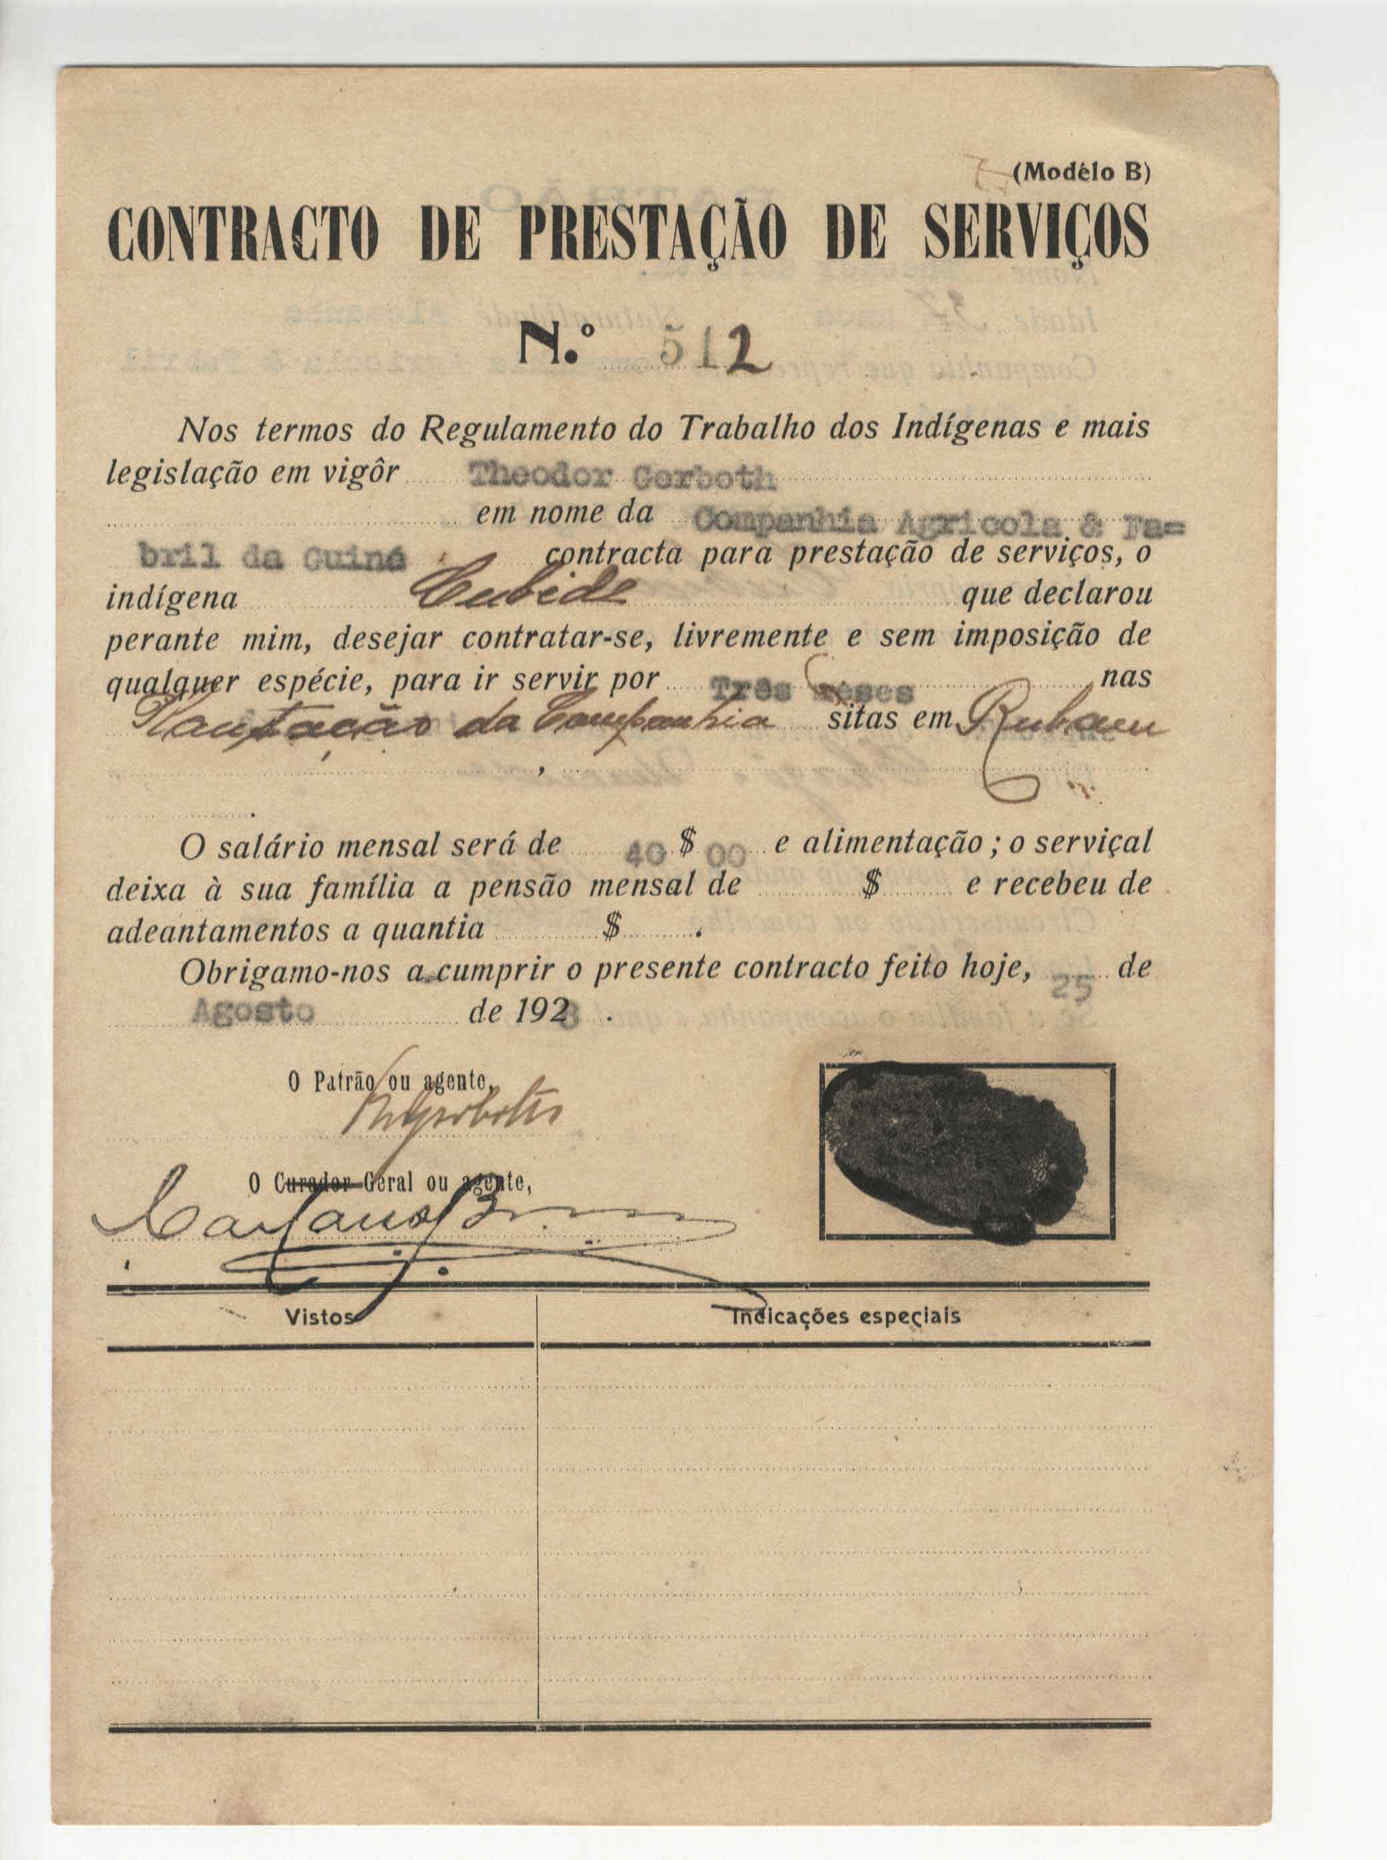 (Modêlo B)
CONTRACTO DE PRESTAÇÃO DE SERVIÇOS
N.º 512
Nos termos do Regulamento do Trabalho dos Indígenas e mais
legislação em vigôr Theodor Gerboth
em nome da Companhia Agricola & Fa=
bril da Guiné contracta para prestação de serviços, o
indígena Cubide que declarou
perante mim, desejar contratar-se, livremente e sem imposição de
qualquer espécie, para ir servir por Três meses nas
Plantação da Companhia sitas em Rubane
O salário mensal será de 40$00 e alimentação; o serviçal
deixa à sua família a pensão mensal de $ e recebeu de
adeantamentos a quantia $ .
Obrigamo-nos a cumprir o presente contracto feito hoje, 25 de
Agosto de 1928.
O Patrão ou agente,
O Curador Geral ou agente,
Vistos
Indicações especiais